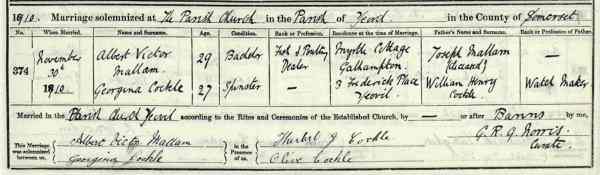 1910. Marriage solemnized at The Parish Church in the Parish of Yeovil in the County of Somerset
No. When Married. Name and Surname. Age. Condition. Rank or Profession. Residence at the time of Marriage. Father's Name and Surname. Rank or Profession of Father.
374 November 30th 1910 Albert Victor Mallam. 29 Bachelor Fish & Poultry Dealer Myrtle Cottage Galhampton. Joseph Mallam (deceased) —
Georgina Cockle 27 Spinster — 3 Frederick Place Yeovil. William Henry Cockle. Watch Maker
Married in the Parish Church Yeovil according to the Rites and Ceremonies of the Established Church, by — or after Banns by me,
This Marriage was solemnized between us, Albert Victor Mallam Georgina Cockle in the Presence of us, Herbert J Cockle Olive Cockle G. R. G. Norris. Curate.